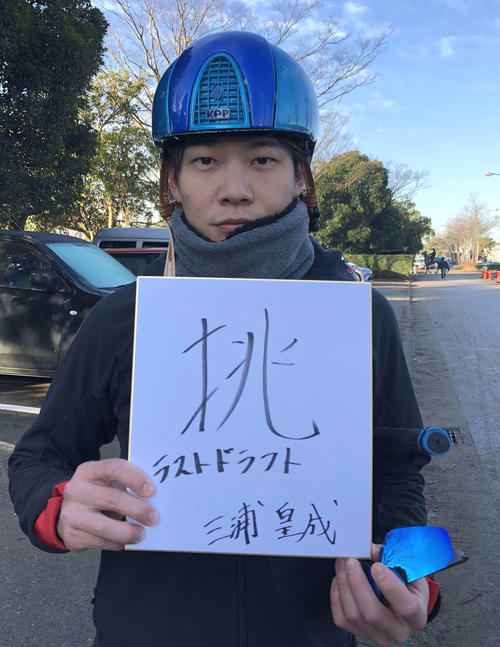 KEP
挑
ラストドラフト
三浦 皇成